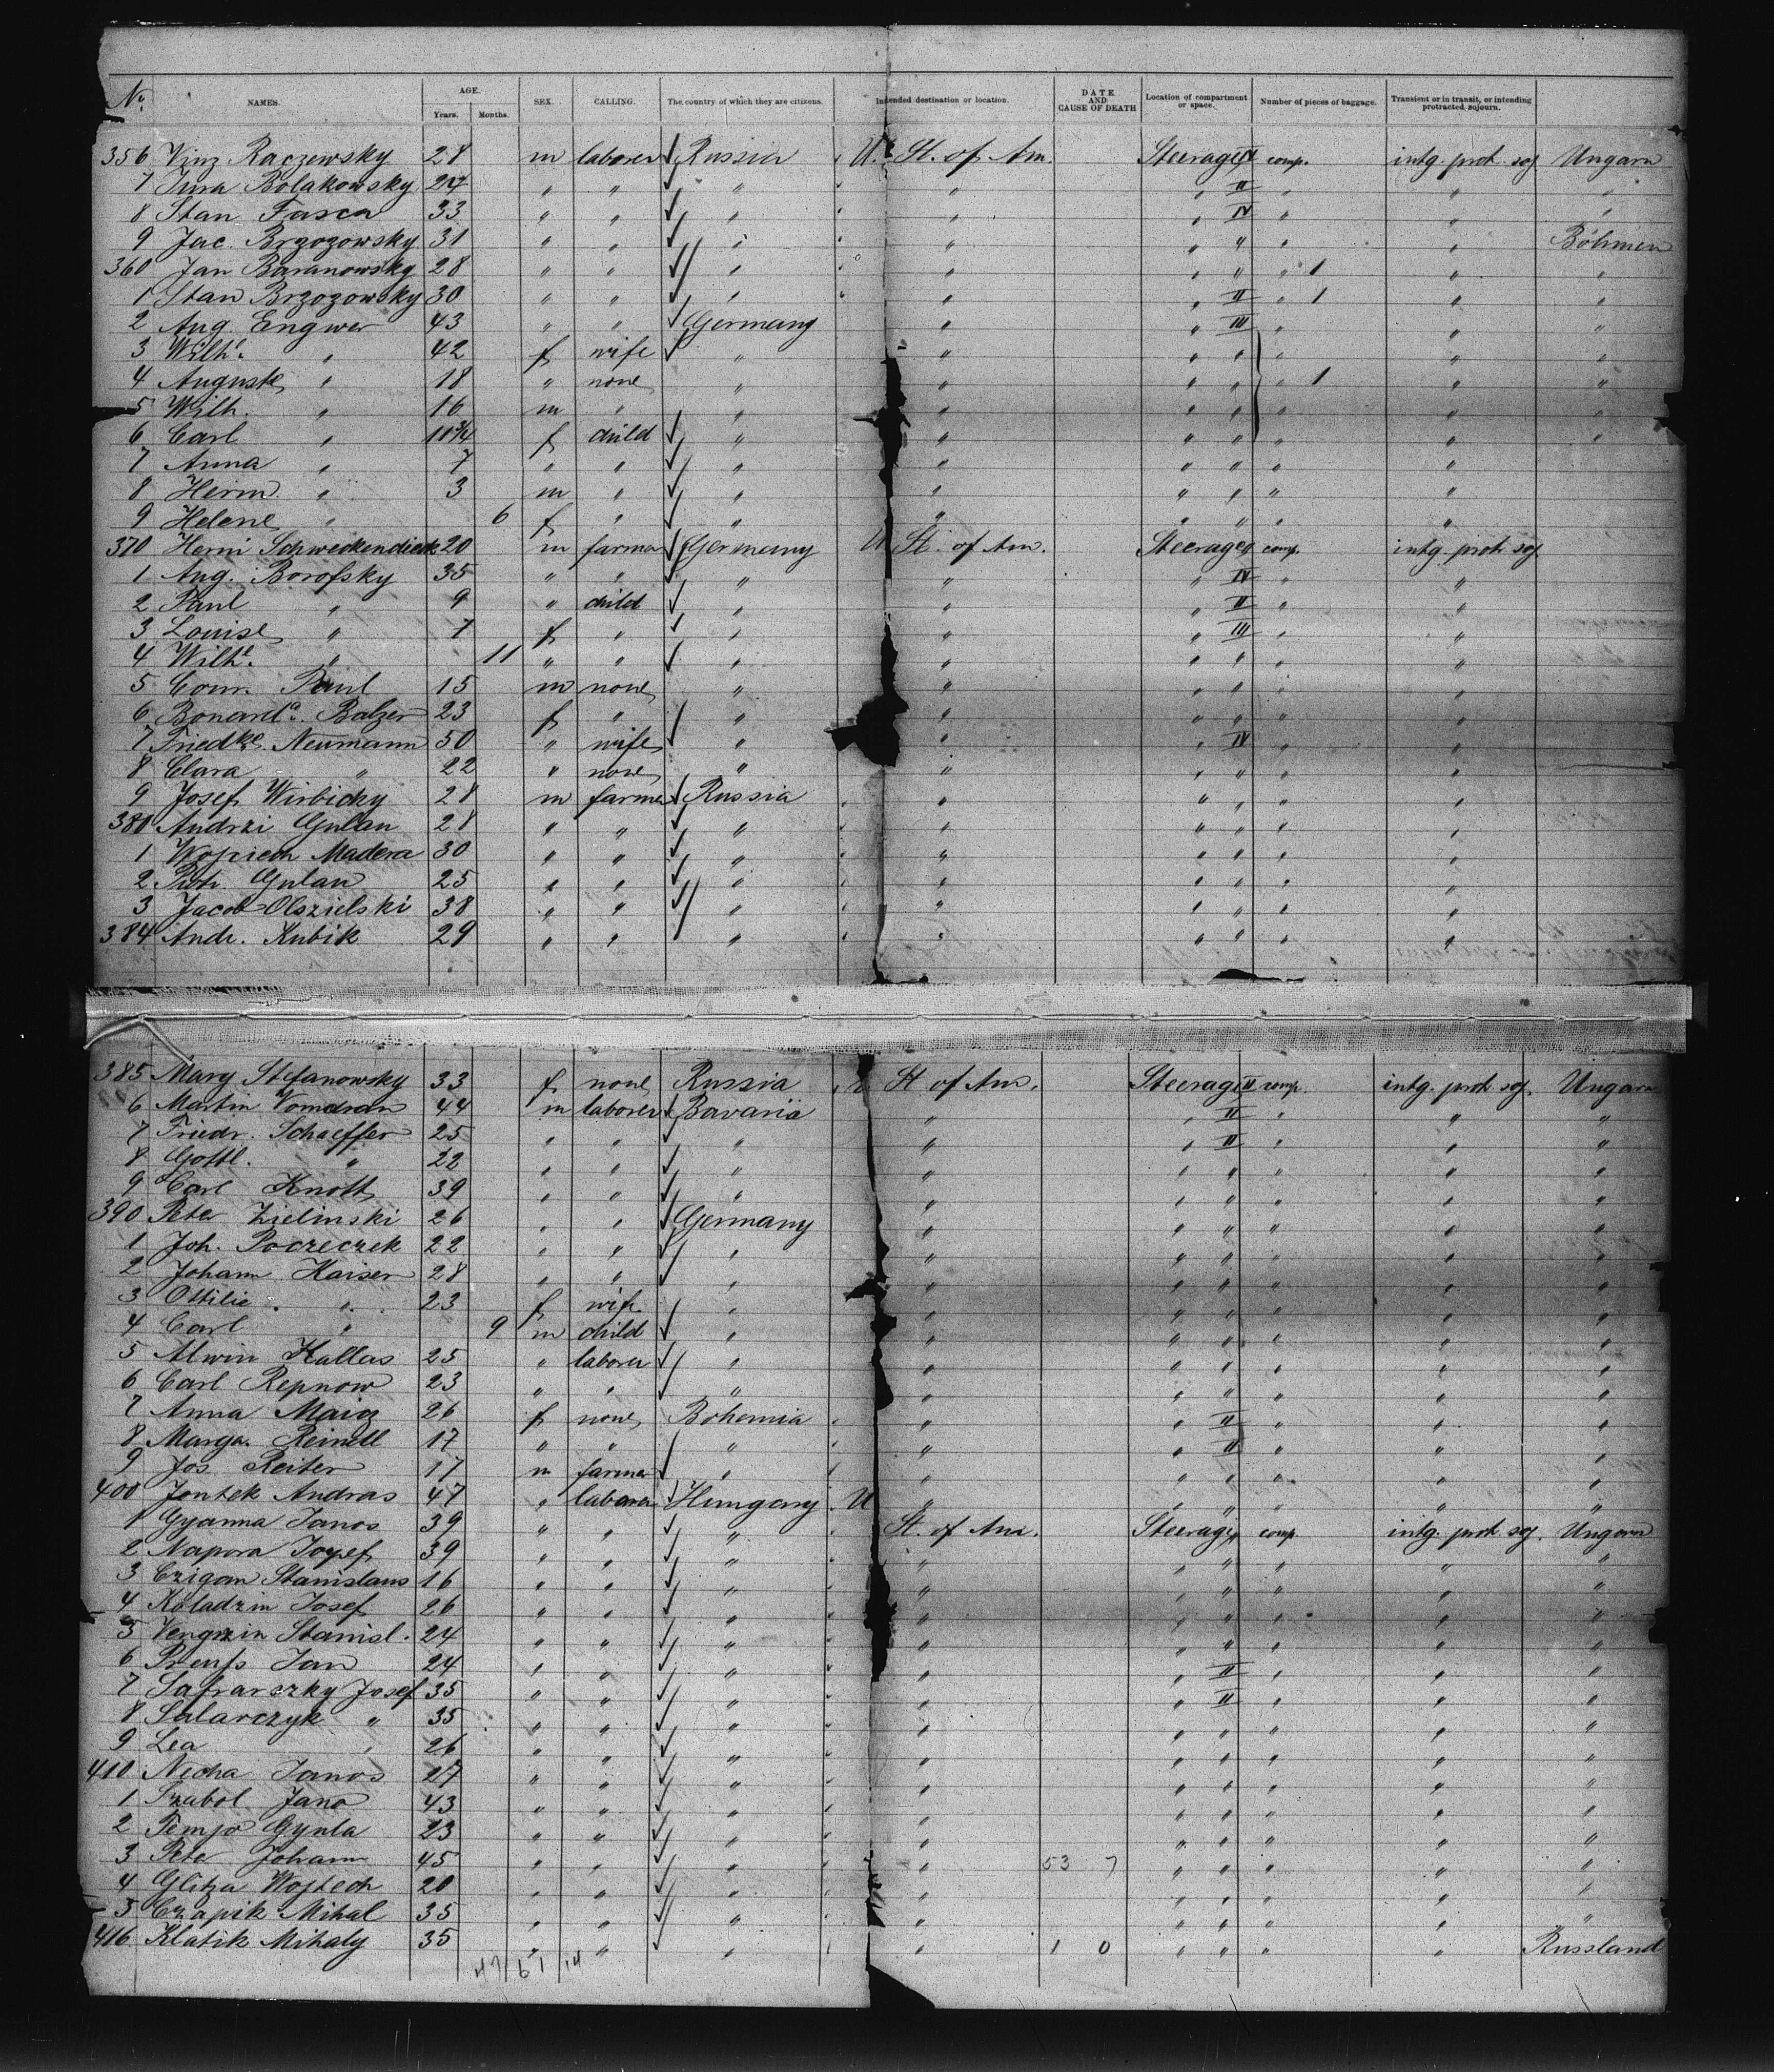 No. NAMES. AGE. Years. Months. SEX. CALLING. The country of which they are citizens. Intended destination or location. DATE AND CAUSE OF DEATH Location of compartment or space. Number of pieces of baggage. Transient or in transit, or intending protracted sojourn.
356 Vinz Raczewsky 28 m laborer Russia U. St. of Am. Steerage II comp. intg. prot. soj Ungarn
7 Jura Bolakowsky 24 " " " " " II " " "
8 Stan Fasca 33 " " " " " IV " " "
9 Jac. Brzozowsky 31 " " " " " " " " Böhmen
360 Jan Baranowsky 28 " " " " " " " 1 " "
1 Stan Brzozowsky 30 " " " " " II " 1 " "
2 Aug. Engwer 43 " " Germany " " III " " "
3 Wilhe. " 42 f wife " " " " " " "
4 Auguste " 18 " none " " " " " 1 " "
5 Wilh. " 16 m " " " " " " " "
6 Carl " 10 3/4 f child " " " " " " "
7 Anna " 7 " " " " " " " "
8 Herm. " 3 m " " " " " " "
9 Helene " 6 f " " " " " " "
370 Herm Schweckendieck 20 m farmer Germany U St. of Am. Steerage comp. intg. prot. soj
1 Aug. Borofsky 35 " " " " " IV " "
2 Paul " 9 " child " " " II " "
3 Louise " 7 f " " " " III " "
4 Wilhe. " 11 " " " " " " " "
5 Conr. Paul 15 m none " " " " " "
6 Bonarda. Balzer 23 f " " " " " " "
7 Friedke. Neumann 50 " wife " " " IV " "
8 Clara " 22 " none " " " " " "
9 Josef Wirbicky 28 m farmer Russia " " " " "
380 Andrzi Gulan 28 " " " " " " " "
1 Wojciech Madera 30 " " " " " " " "
2 Piotr. Gulan 25 " " " " " " " "
3 Jacob Olszielski 38 " " " " " " " "
384 Andr. Kubik 29 " " " " " " " "
385 Mary Stefanowsky 33 f none Russia U St of Am. Steerage II comp. intg. prot. soj. Ungarn
6 Martin Vomdran 44 m laborer Bavaria " " II " " "
7 Friedr. Schaeffer 25 " " " " " III " " "
8 Gottl. " 22 " " " " " " " " "
9 Carl Knott 39 " " " " " " " " "
390 Peter Zielinski 26 " " Germany " " " " " "
1 Joh. Poczeczek 22 " " " " " " " " "
2 Johann Kaiser 28 " " " " " " " " "
3 Ottilie " 23 f wife " " " " " " "
4 Carl " 9 m child " " " " " " "
5 Alwin Kallas 25 " laborer " " " " " " "
6 Carl Repnow 23 " " " " " " " " "
7 Anna Maig 26 f none Bohemia " " II " " "
8 Marga. Reindl 17 " " " " " II " " "
9 Jos Reiter 17 m farmer " " " " " " "
400 Jentek Andras 47 " laborer Hungary U " " " " " "
1 Gyanna Janos 39 " " " St. of Am. Steerage comp. intg. prot. soj. Ungarn
2 Napora Joysef 39 " " " " " " " " "
3 Czigan Stanislaus 16 " " " " " " " " "
4 Koladzin Josef 26 " " " " " " " " "
5 Vengrzin Stanisl. 24 " " " " " " " " "
6 Preuss Jan 24 " " " " " II " " "
7 Safrarszky Josef 35 " " " " " II " " "
8 Salarczyk " 35 " " " " " " " " "
9 Lea " 26 " " " " " " " " "
410 Necha Janos 27 " " " " " " " " "
1 Szabol Jano 43 " " " " " " " " "
2 Temjo Gyula 23 " " " " " " " " "
3 Peter Johann 45 " " " " 53 7 " " " " "
4 Glitza Wojtech 20 " " " " " " " " "
5 Czapik Mihal 35 " " " " " " " " "
416 Klatik Mihaly 35 " " " " 1 0 " " " " Russland
47 / 61 / 14